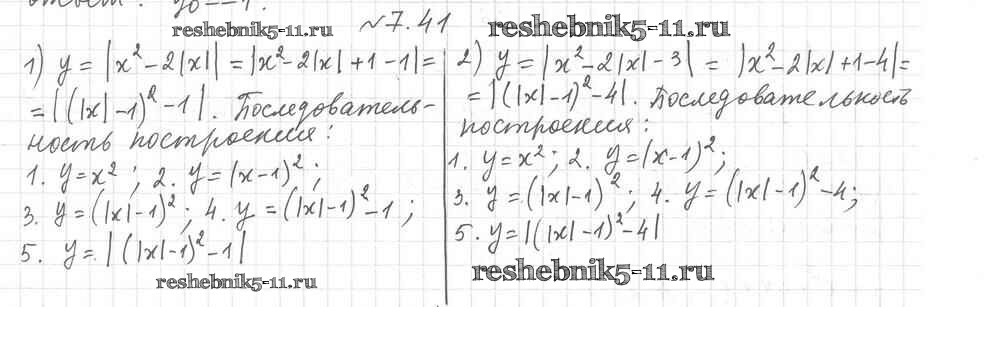 №7.41
reshebnik5-11.ru
reshebnik5-11.ru
1) y = |x² - 2|x|| = |x² - 2|x| + 1 - 1| =
= |(|x| - 1)² - 1|. Последователь-
ность построения:
1. y = x²; 2. y = (x - 1)²;
3. y = (|x| - 1)²; 4. y = (|x| - 1)² - 1;
5. y = |(|x| - 1)² - 1|
reshebnik5-11.ru
2) y = |x² - 2|x| - 3| = |x² - 2|x| + 1 - 4| =
= |(|x| - 1)² - 4|. Последовательность
построения:
1. y = x²; 2. y = (x - 1)²;
3. y = (|x| - 1)²; 4. y = (|x| - 1)² - 4;
5. y = |(|x| - 1)² - 4|
reshebnik5-11.ru